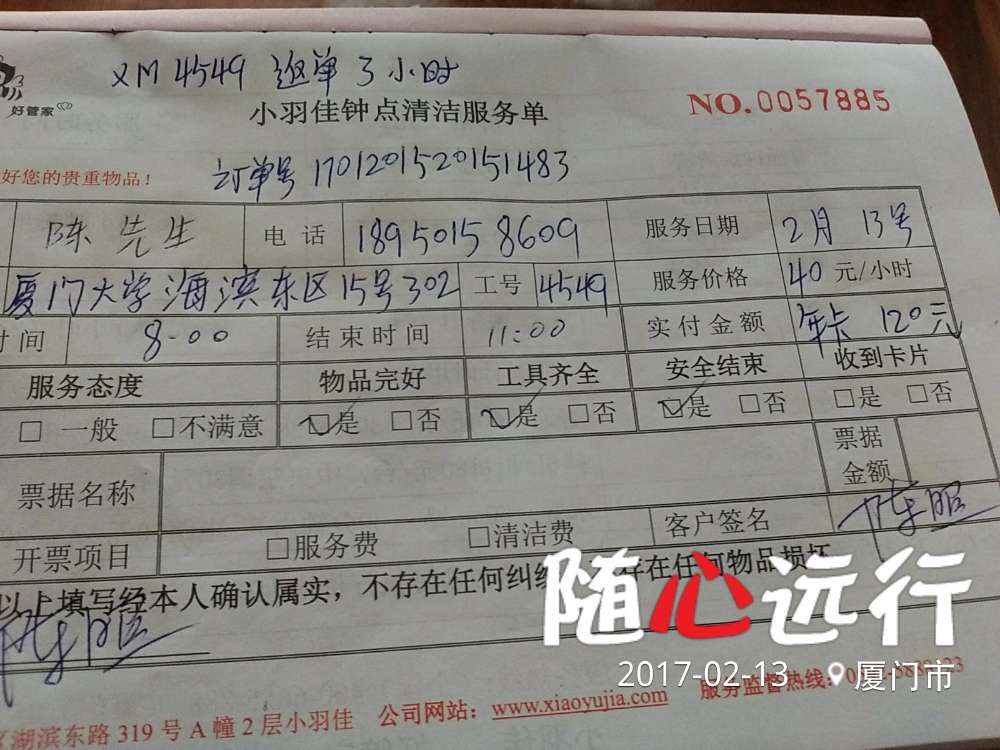 XM 4549 返单 3小时
好管家
小羽佳钟点清洁服务单
NO.0057885
好您的贵重物品！
订单号 170120152015​1483
陈先生 电话 18950158609 服务日期 2月 13号
厦门大学海滨东区15号302 工号 4549 服务价格 40 元/小时
时间 8-00 结束时间 11:00 实付金额 年卡 120元
服务态度 物品完好 工具齐全 安全结束 收到卡片
□ 一般 □不满意 ☑是 □否 ☑是 □否 ☑是 □否 □是 □否
票据名称 票据金额
开票项目 □服务费 □清洁费 客户签名
以上填写经本人确认属实，不存在任何纠纷 存在任何物品损坏
随心远行
2017-02-13 厦门市
湖滨东路 319 号 A 幢 2 层小羽佳 公司网站：www.xiaoyujia.com 服务监督热线：